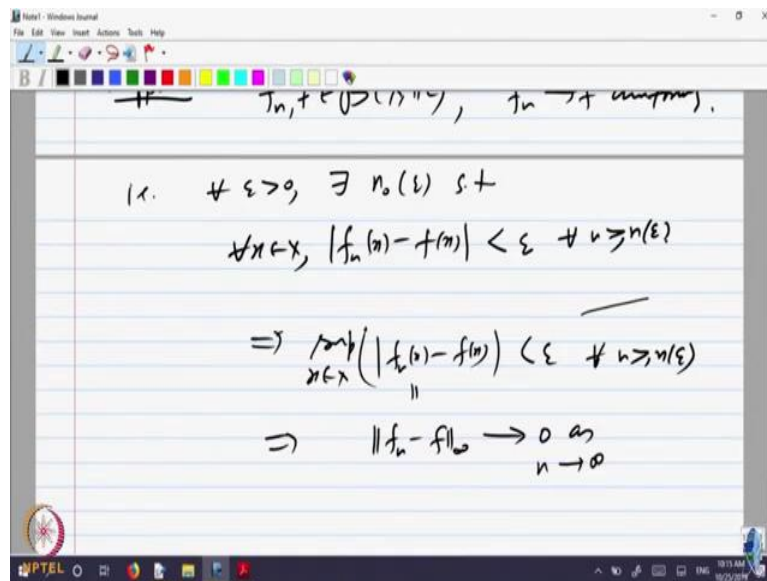 Note1 - Windows Journal
File Edit View Insert Actions Tools Help
B I
f_n, f ∈ , f_n → f uniformly.
i.e. ∀ ε>0, ∃ n_0(ε) s.t
∀x∈X, |f_n(x) - f(x)| < ε ∀ n≥n(ε)
=> sup_{x∈X} (|f_n(x) - f(x)|) < ε ∀ n≥n(ε)
||
=> ||f_n - f||_∞ → 0 as
n → ∞
NPTEL
ENG
10:15 AM
10/25/2019